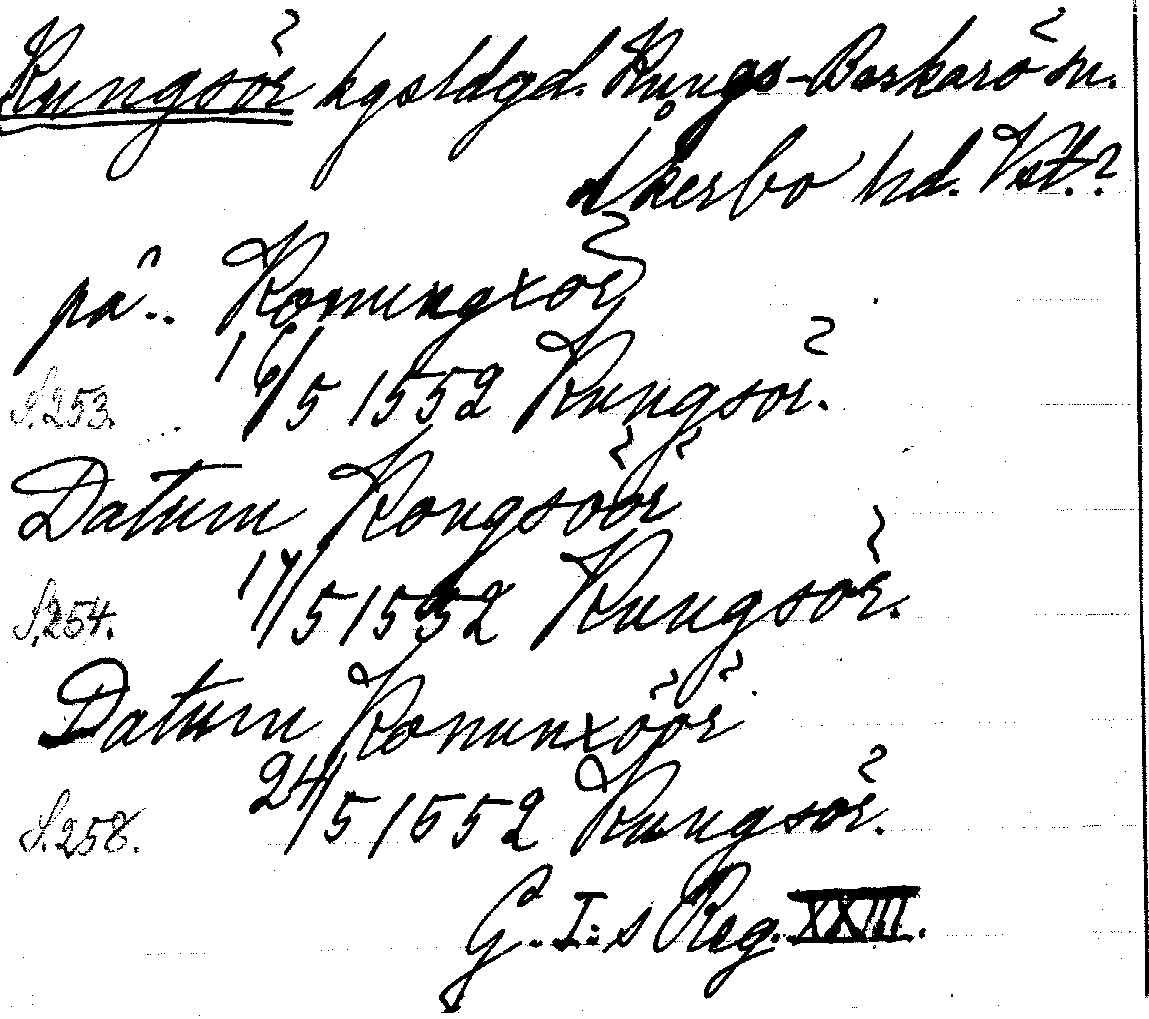 Kungsör kgsldgd. Kungs-Barkarö sn.
Åkerbo hd. Vst.?
på.. Konungxör
S.253. 16/5 1552 Kungsör.
Datum Kongsöör
S.254. 17/5 1552 Kungsör.
Datum Konunxöör
S.258. 24/5 1552 Kungsör.
G. I:s Reg. XXIII.